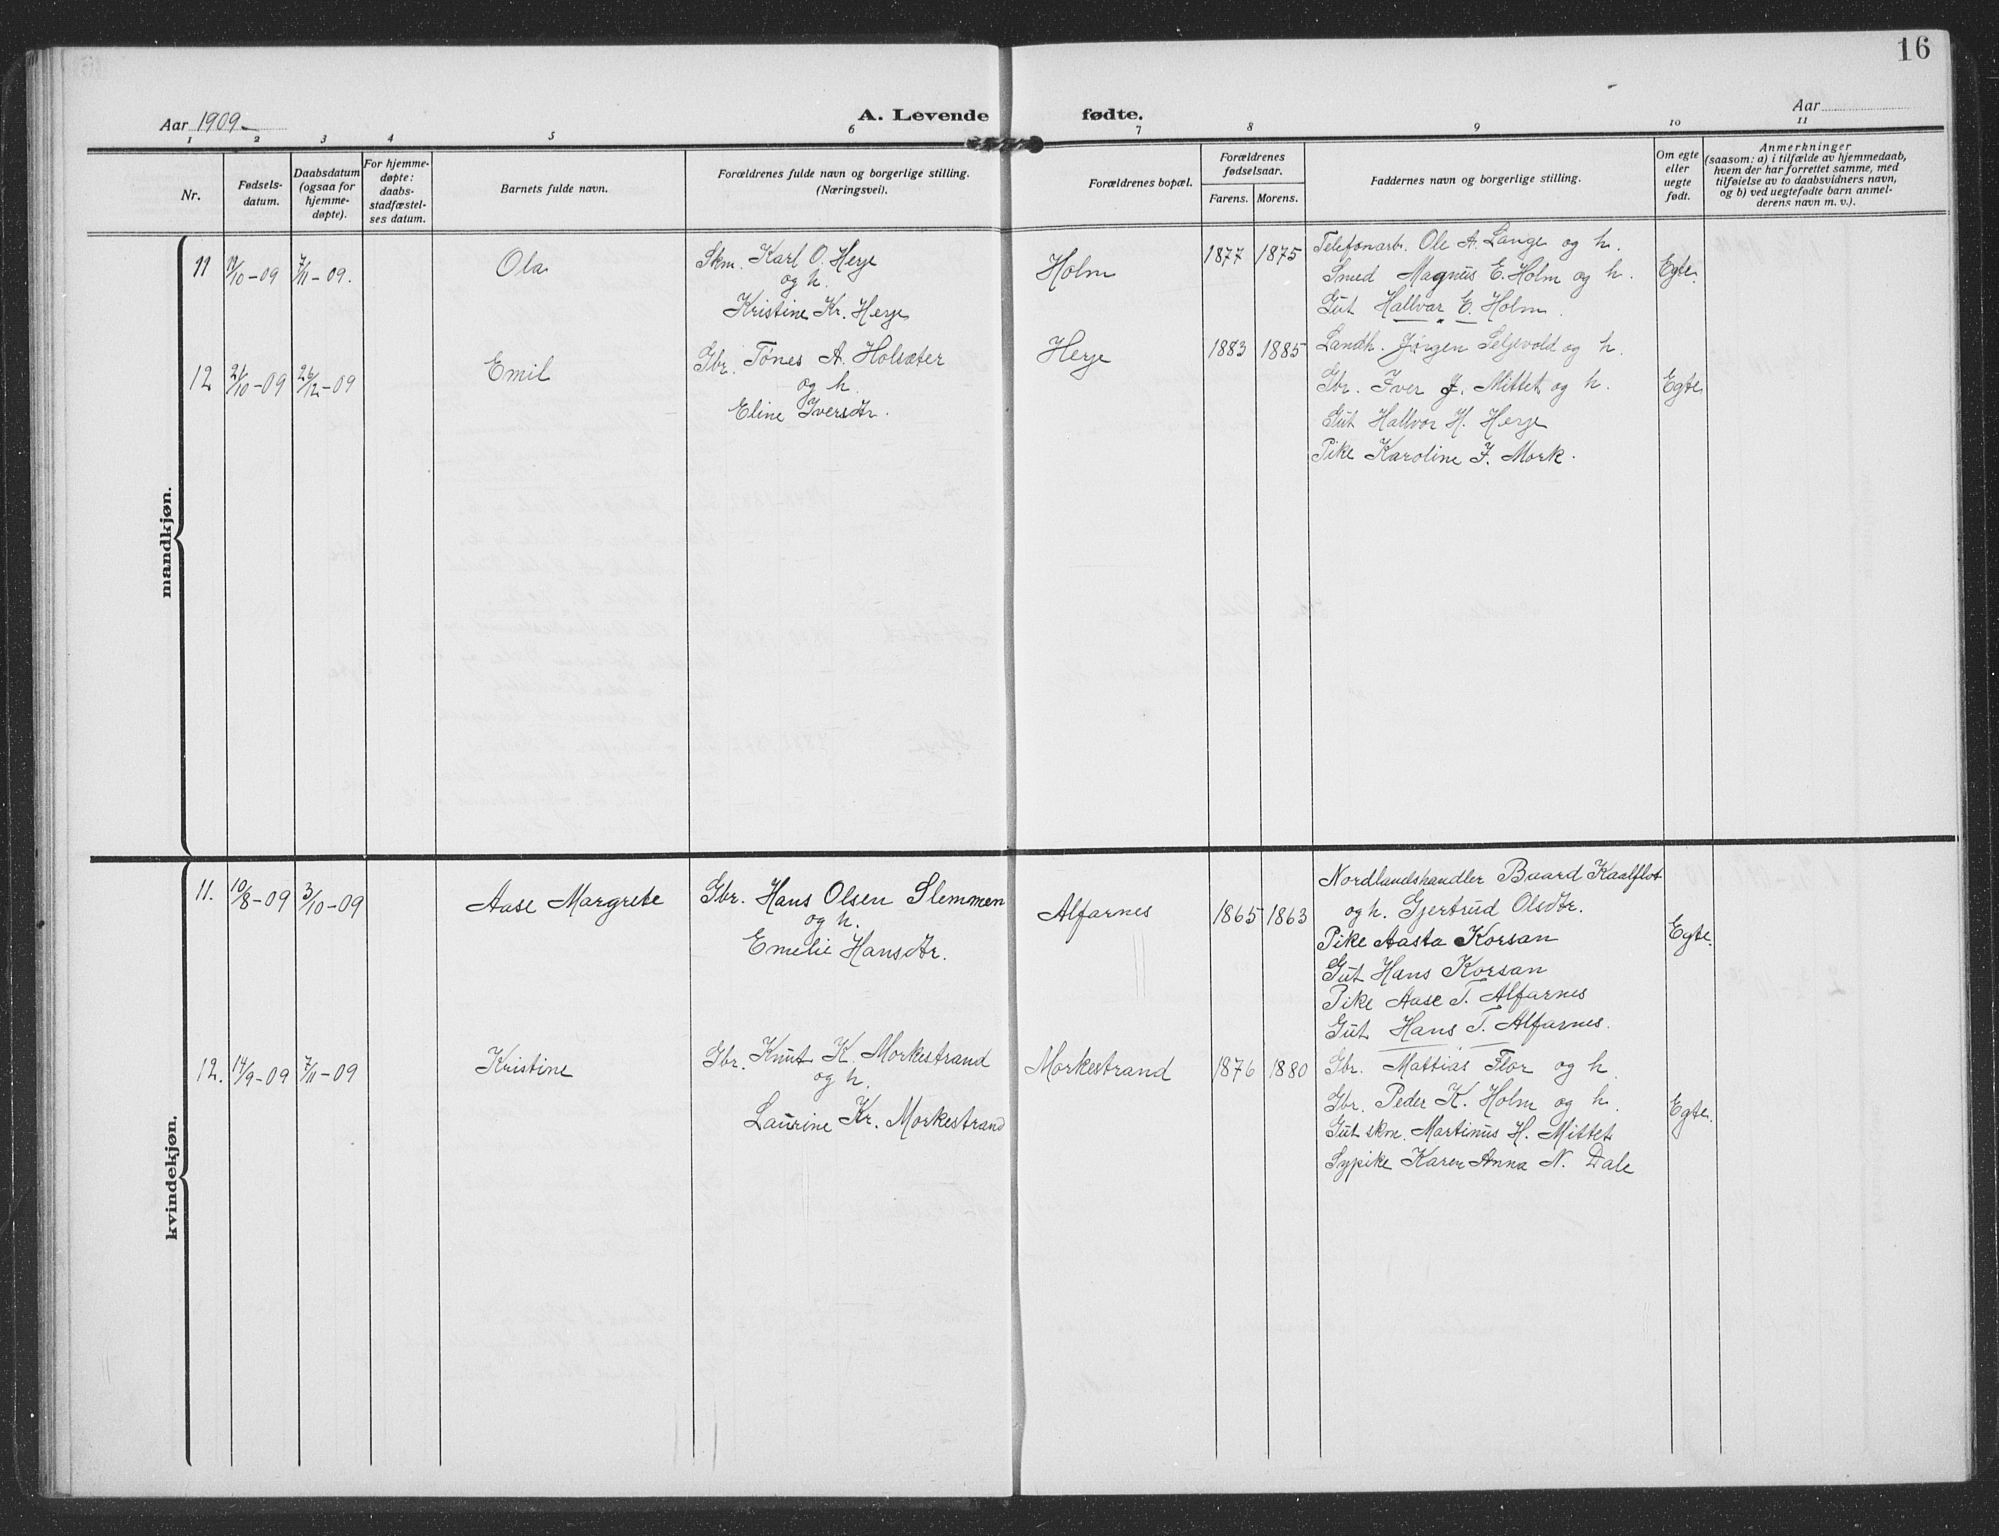 16
Aar 1909
A. Levende fødte.
Aar
1 2 3 4 5 6 7 8 9 10 11
Nr.
Fødsels-
datum.
Daabsdatum
(ogsaa for
hjemme-
døpte).
For hjemme-
døpte:
daabs-
stadfæstel-
ses datum.
Barnets fulde navn.
Forældrenes fulde navn og borgerlige stilling.
(Næringsvei).
Forældrenes bopæl.
Forældrenes
fødselsaar.
Farens. Morens.
Faddernes navn og borgerlige stilling.
Om egte
eller
uegte
født.
Anmerkninger
(saasom: a) i tilfælde av hjemmedaab,
hvem der har forrettet samme, med
tilføielse av to daabsvidners navn,
og b) ved uegtefødte barn anmel-
derens navn m. v.).
mandkjøn.
11 /10-09 7/11-09. Ola
Skm. Karl O. Herje
og h.
Kristine Kr. Herje
Holm 1877 1875
Telefonarb. Ole A. Lange og h.
Smed Magnus E. Holm og h.
Gut Hallvar E. Holm.
Egte.
12 21/10-09 26/12-09 Emil
Gbr. Tønes A. Holsæter
og h.
Eline Iversdtr.
Herje 1883 1885
Landh. Jørgen Seljevold og h.
Gbr. Iver J. Mittet og h.
Gut Hallvor H. Herje
Pike Karoline J. Mork.
Egte
kvindekjøn.
11. 10/8-09 3/10-09 Aase Margrete
Gbr. Hans Olsen Slemmen
og h.
Emelie Hansdtr.
Alfarnes 1865 1863
Nordlandshandler Baard Kaalflot
og h. Gjertrud Olsdtr.
Pike Aasta Korsan
Gut Hans Korsan
Pike Aase T. Alfarnes
Gut Hans T. Alfarnes.
Egte.
12. 14/9-09 7/11-09 Kristine
Gbr. Knut K. Morkestrand
og h.
Laurine Kr. Morkestrand
Morkestrand 1876 1880
Gbr. Mattias Flor og h.
Gbr. Peder K. Holm og h.
Gut skm. Martinus H. Mittet
Sypike Karen Anna N. Dale
Egte.